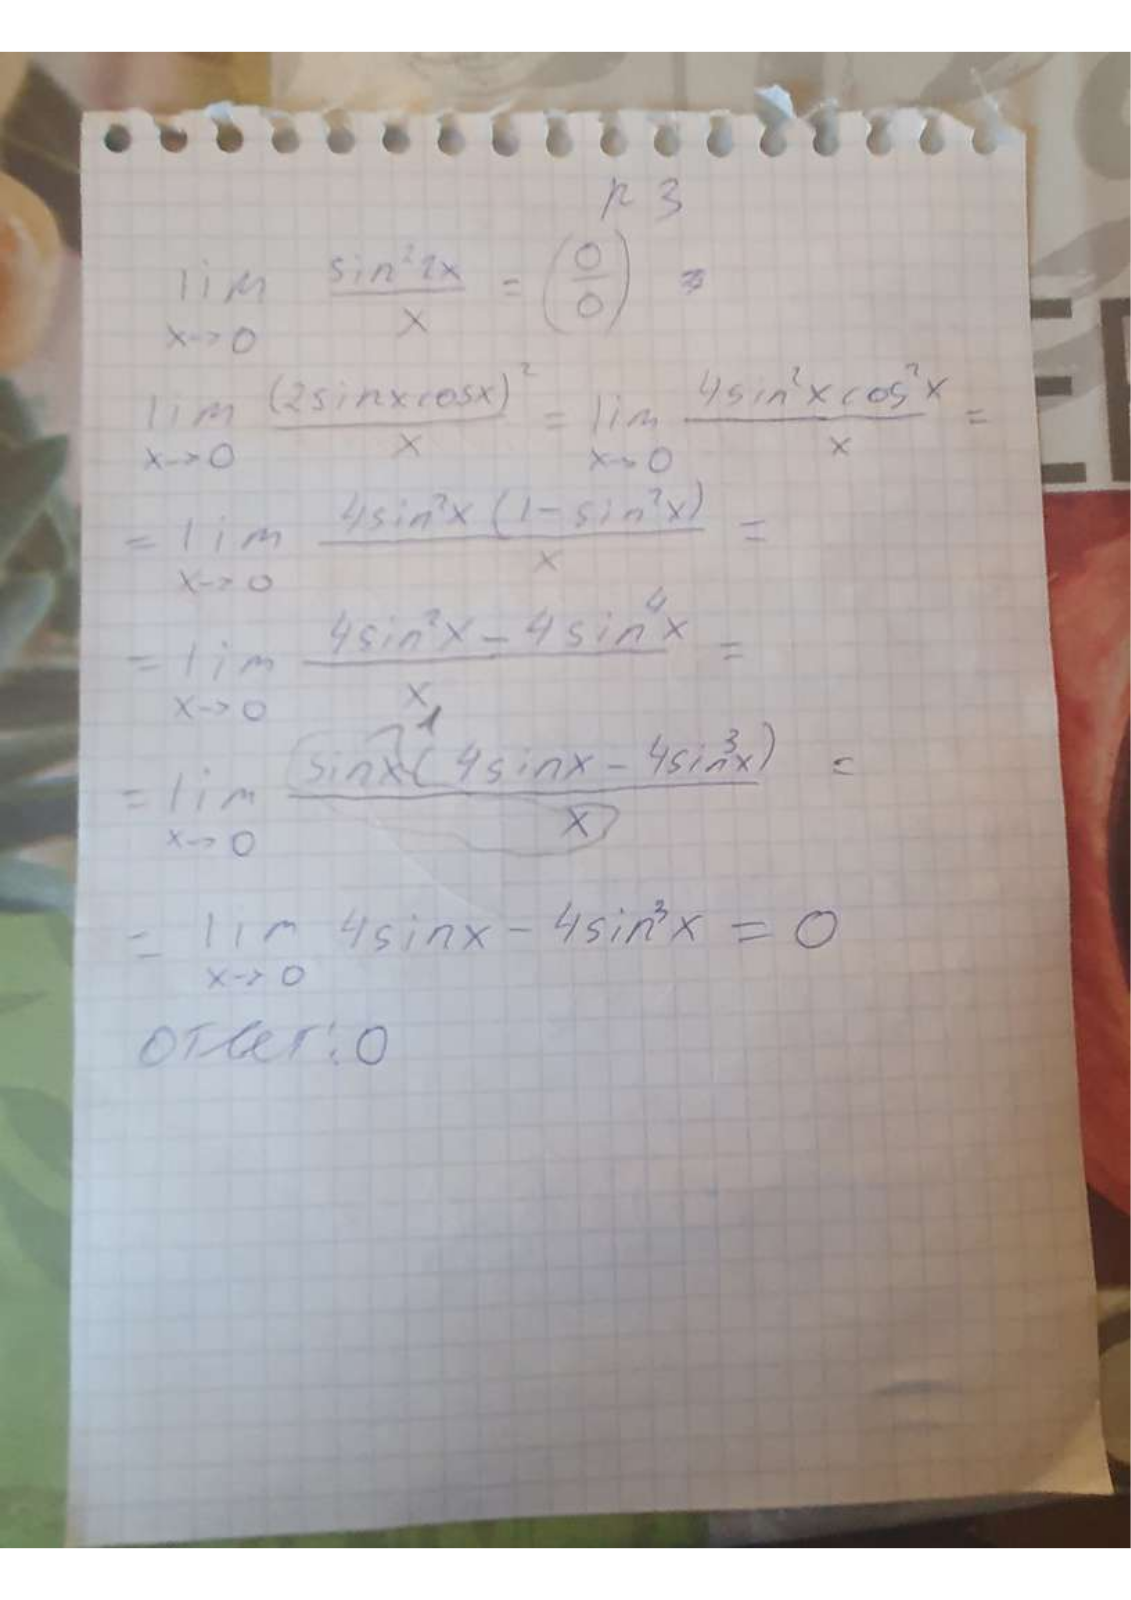 n 3
lim x→0 sin²2x / x = (0/0) =
lim x→0 (2sinxcosx)² / x = lim x→0 4sin²xcos²x / x =
= lim x→0 4sin²x(1-sin²x) / x =
= lim x→0 4sin²x-4sin⁴x / x =
= lim x→0 sinx(4sinx-4sin³x) / x =
1
= lim x→0 4sinx-4sin³x = 0
ответ:0